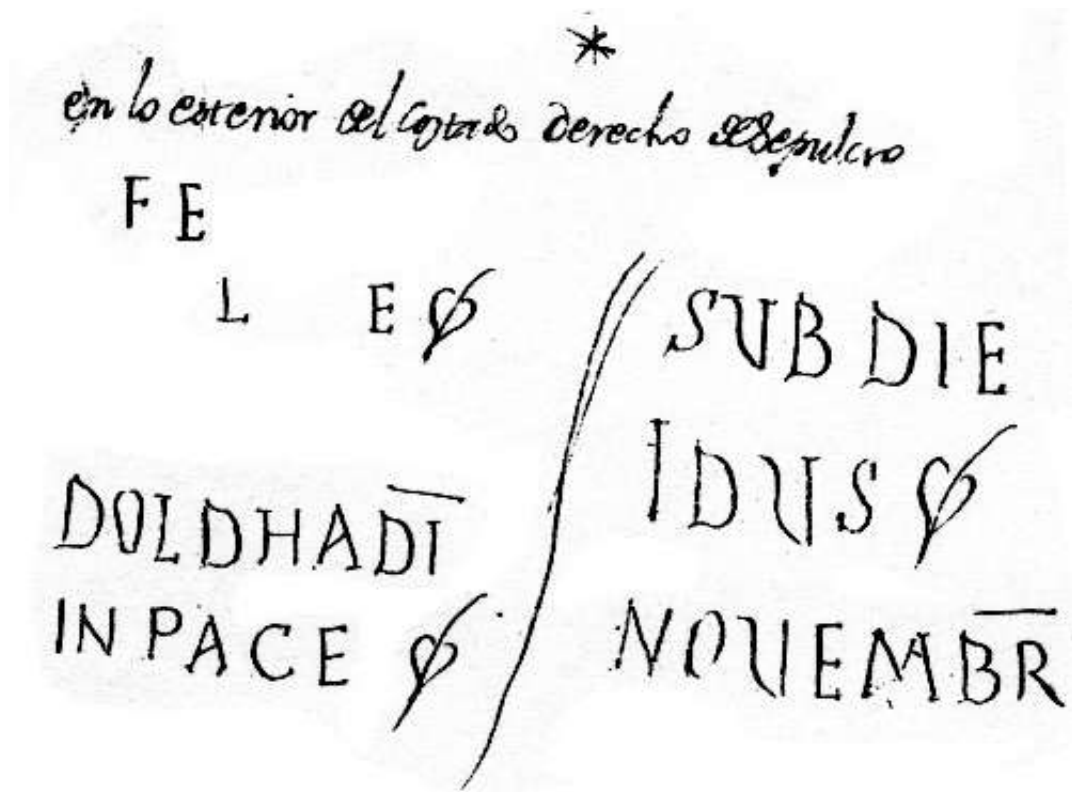 *
en lo exterior del costado derecho del Sepulcro
F E
L E ❦
DOLDHADI̅
IN PACE ❦
SUB DIE
IDUS ❦
NOVEMB̅R̅